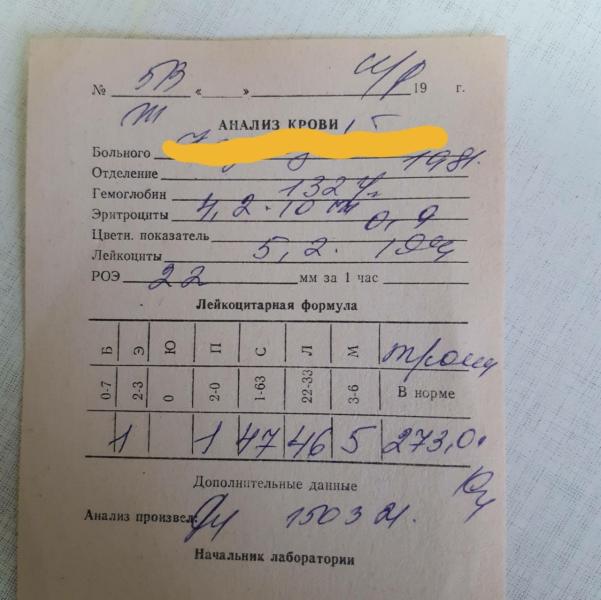 № 5В « » 19 г.
АНАЛИЗ КРОВИ
Больного
Отделение 1981.
Гемоглобин 132 г/л
Эритроциты 4,2 · 10
Цветн. показатель 0,9
Лейкоциты 5,2 ·
РОЭ 22 мм за 1 час
Лейкоцитарная формула
Б Э Ю П С Л М тромб
0-7 2-3 0 2-0 1-63 22-33 3-6 В норме
1 1 47 46 5 273,0.
Дополнительные данные
Анализ произвел: 150321.
Начальник лаборатории